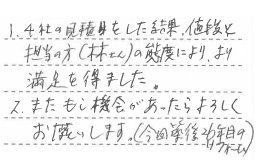 1. 4社の見積目をした結果、値段と
担当の方(林さん)の態度により、より
満足を得ました。
2. またもし機会があったらよろしく
お願いします。(今回築後21年目の
リフォーム)